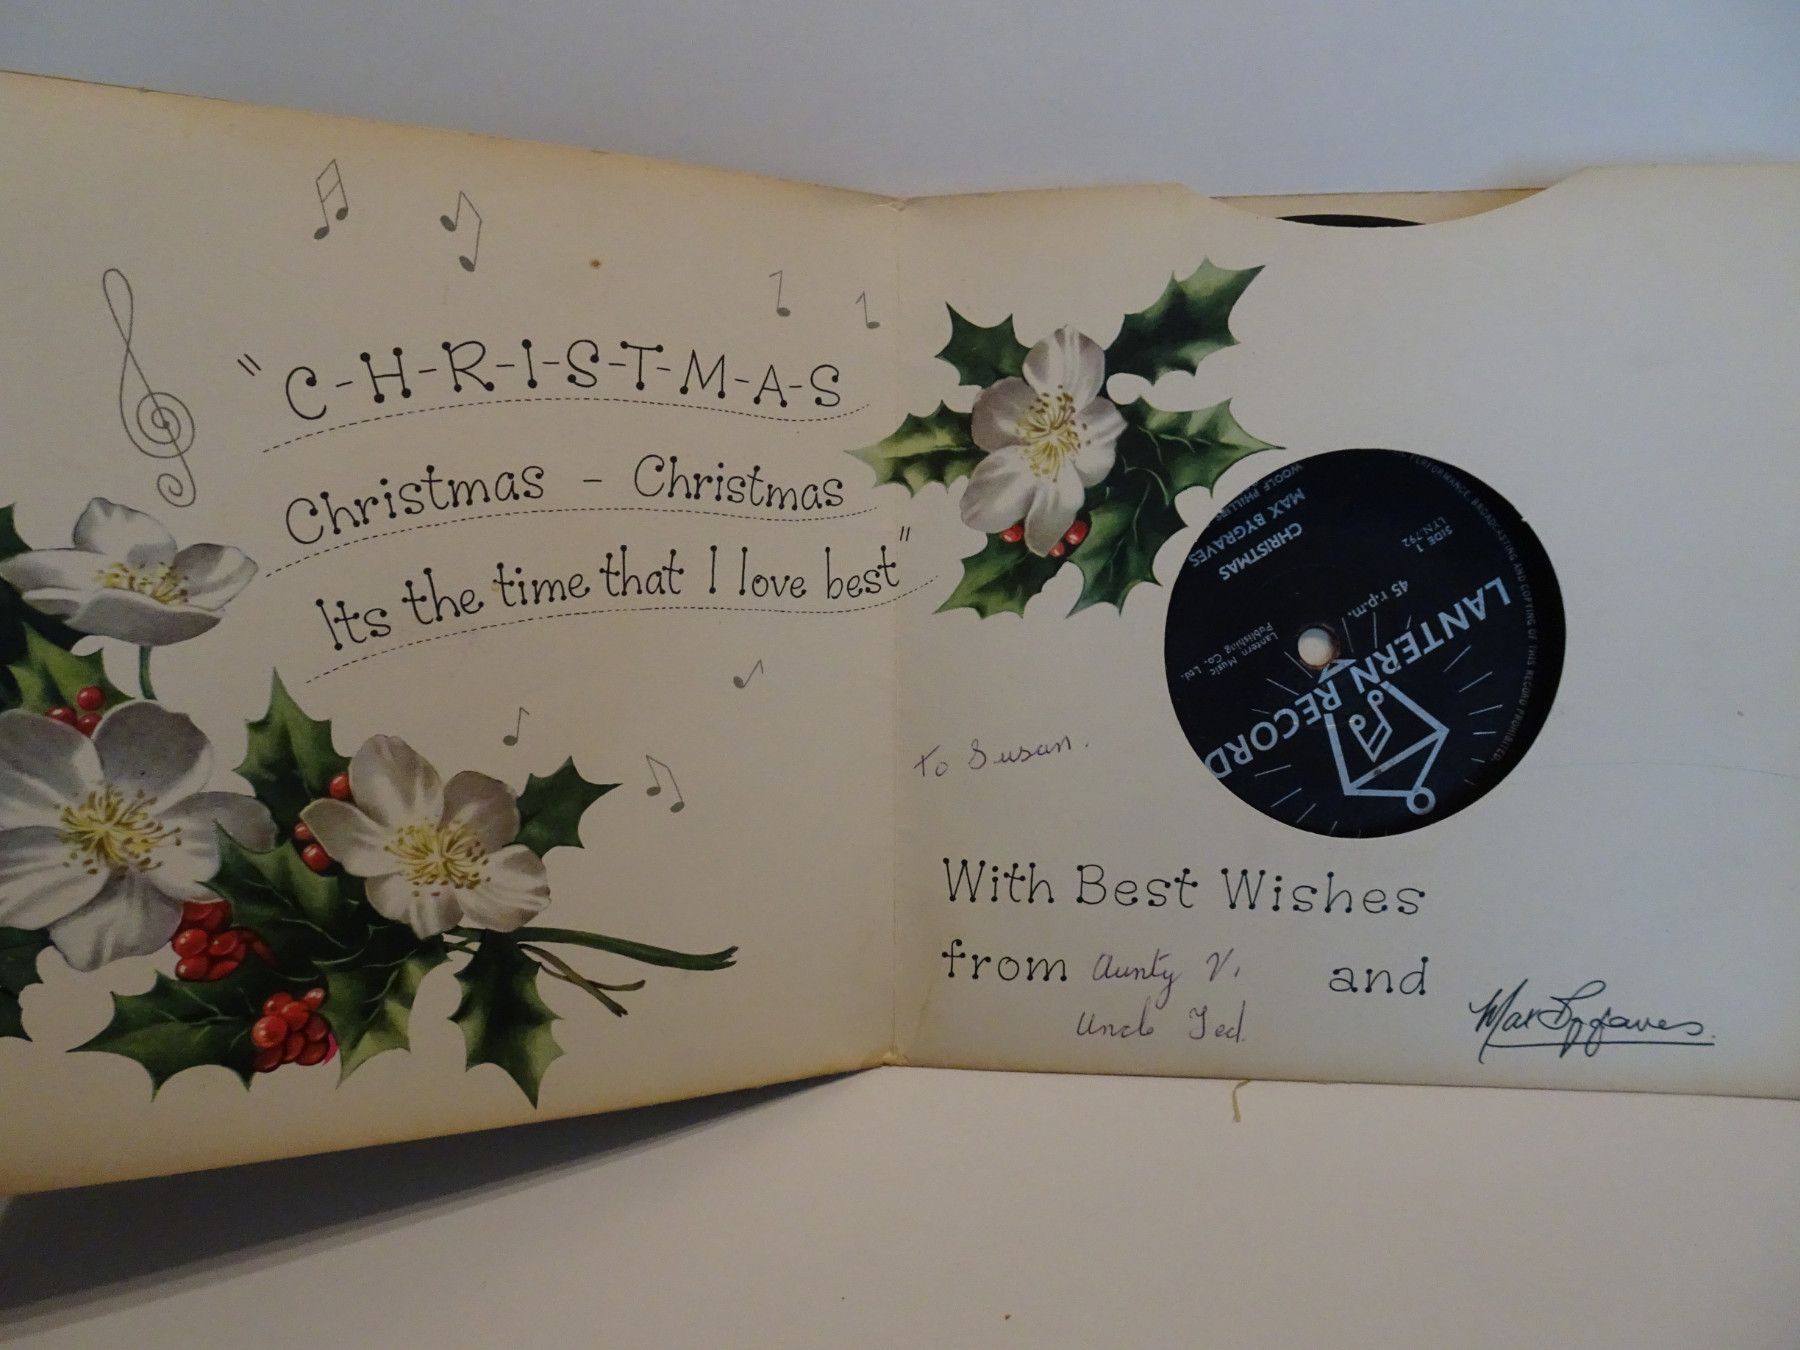 "C-H-R-I-S-T-M-A-S
Christmas - Christmas
Its the time that I love best"
to Susan.
With Best Wishes
from Aunty V. and
Uncle Ted.
Max Bygraves.
LANTERN RECORD
45 r.p.m.
Lantern Music
Publishing Co. Ltd.
SIDE 1
LYN.792
CHRISTMAS
MAX BYGRAVES
WOOLF PHILLIPS
PERFORMANCE, BROADCASTING AND COPYING OF THIS RECORD PROHIBITED.